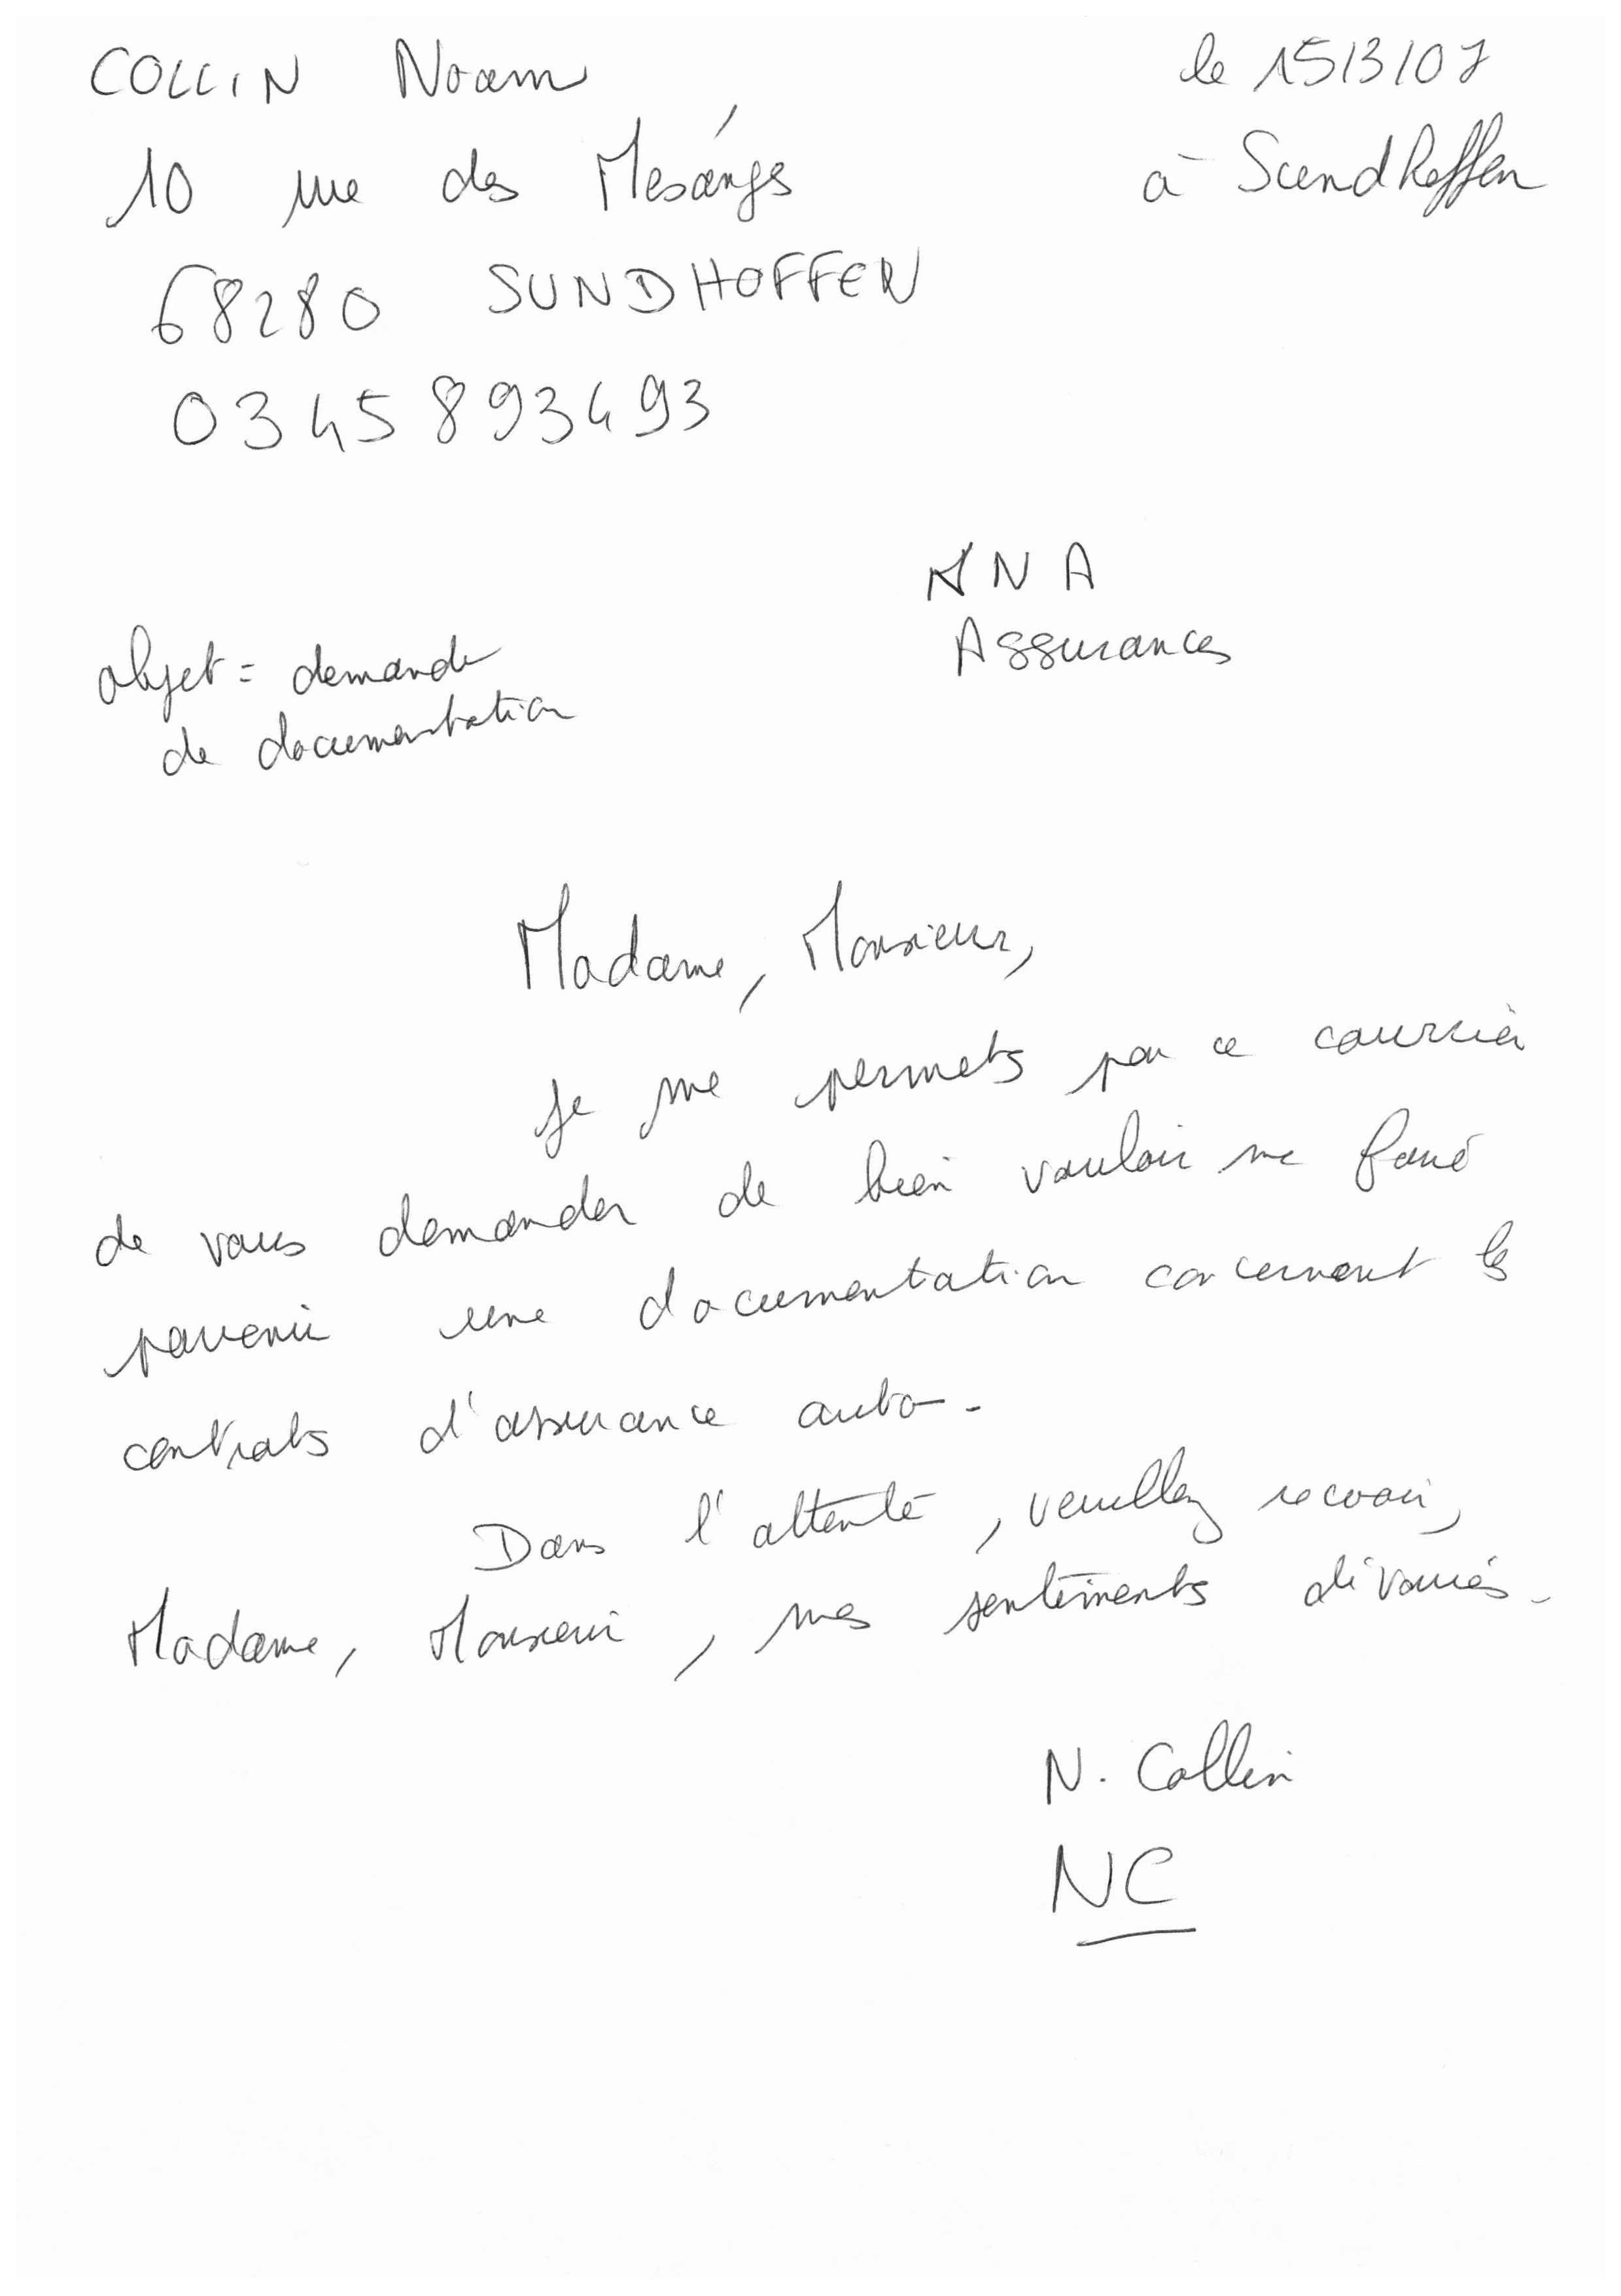 COLLIN Noam
le 15/3/07
10 rue des Mésanges
à Sundhoffen
68280 SUNDHOFFEN
0345893493
ANA
Assurances
objet = demande
de documentation
Madame, Monsieur,
Je me permets par ce courrier
de vous demander de bien vouloir me faire
parvenir une documentation concernant les
contrats d'assurance auto.
Dans l'attente, veuillez recevoir,
Madame, Monsieur, mes sentiments dévoués.
N. Collin
NC